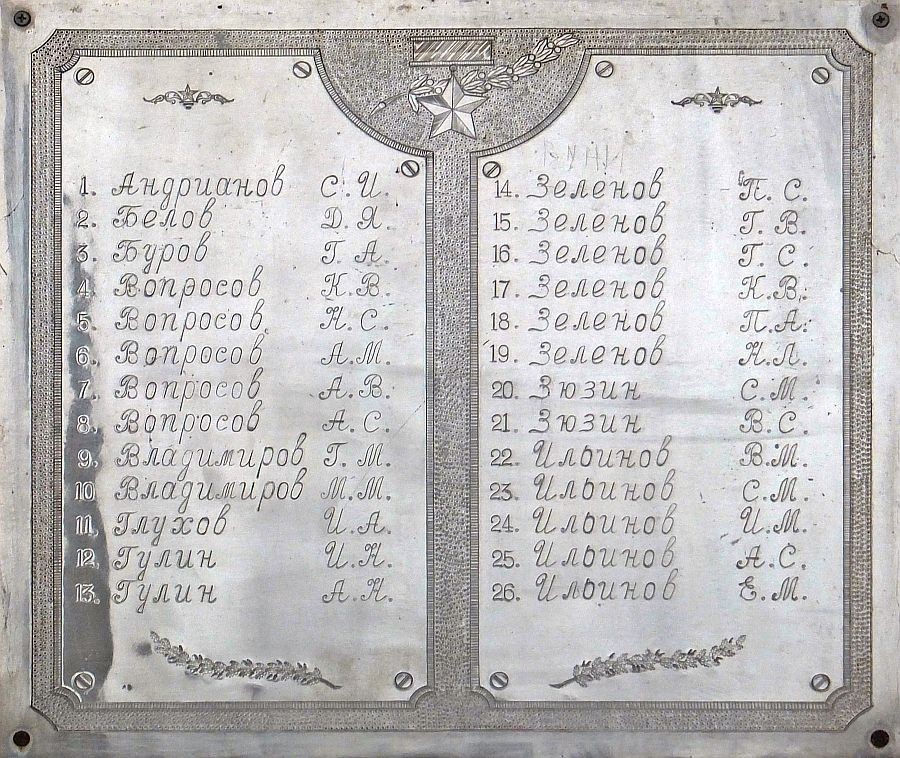 1. Андрианов С. И.
2. Белов Д. Я.
3. Буров Г. А.
4. Вопросов К. В.
5. Вопросов Н. С.
6. Вопросов А. М.
7. Вопросов А. В.
8. Вопросов А. С.
9. Владимиров Г. М.
10. Владимиров М. М.
11. Глухов И. А.
12. Гулин И. Н.
13. Гулин А. Н.
14. Зеленов П. С.
15. Зеленов Г. В.
16. Зеленов Г. С.
17. Зеленов К. В.
18. Зеленов П. А.
19. Зеленов Н. Л.
20. Зюзин С. М.
21. Зюзин В. С.
22. Ильинов В. М.
23. Ильинов С. М.
24. Ильинов И. М.
25. Ильинов А. С.
26. Ильинов Е. М.